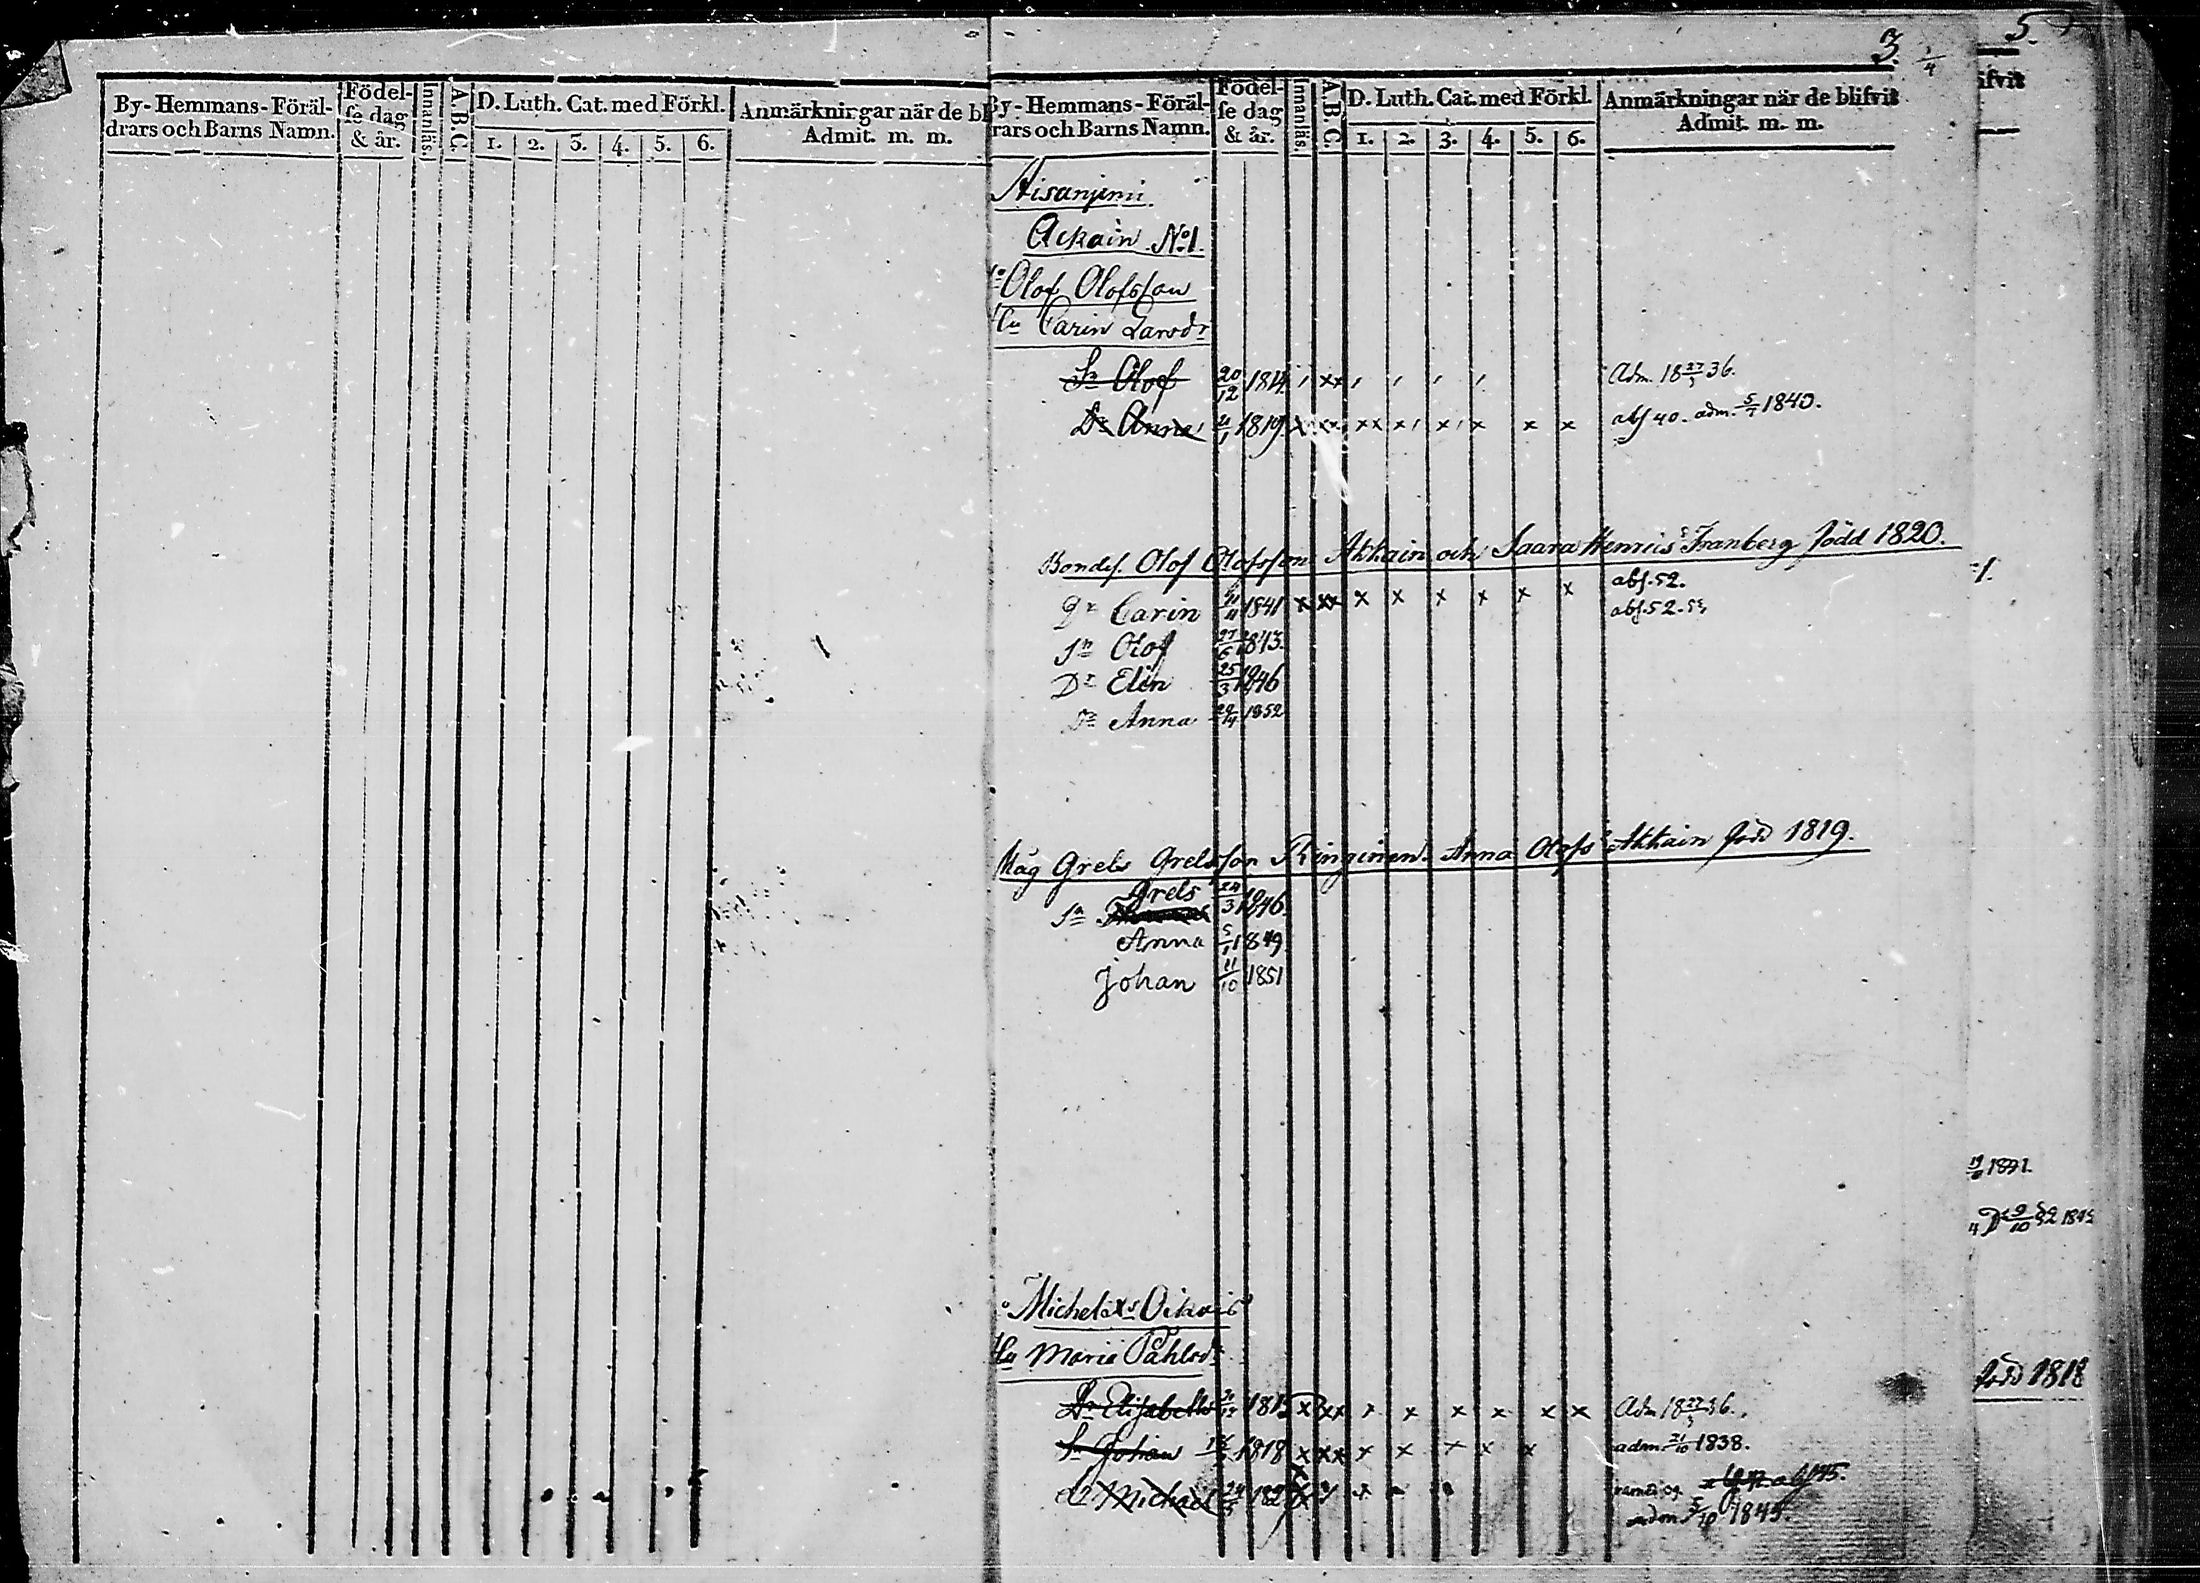 3.
5.
By-Hemmans-Föräl-
drars och Barns Namn.
Födel-
se dag
& år.
Innanläs.
A.B.C.
D. Luth. Cat. med Förkl.
1. 2. 3. 4. 5. 6.
Anmärkningar när de bl
Admit. m. m.
By-Hemmans-Föräl-
drars och Barns Namn.
Födel-
se dag
& år.
Innanläs.
A.B.C.
D. Luth. Cat. med Förkl.
1. 2. 3. 4. 5. 6.
Anmärkningar när de blifvit
Admit. m. m.
ifvit
Aisanjemi
Ackain No 1.
Olof Olofsson
Hu Carin Larsdr
Sn Olof 20/12 1814 Adm. 18 27/3 36.
Dr Anna 1819 abs 40. adm. 1840.
Bondes. Olof Olofsson Akkain och Saara Henrics Franberg född 1820.
Dr Carin 1841 x xx x x x x x x abs. 52.
abs. 52. 53
Sn Olof 27/6 1843.
Dr Elin 25/3 1846
Dr Anna 1852
Måg Grels Grelsson Ringinen. Anna Olofs Akkain född 1819.
Grels
Sn 24/3 1846
Anna 5/1 1849
Johan 11/10 1851
1841.
Michel
Hu Maria Påhlsdr
född 1818
Dr Elisabeth x xx x x x x x x Adm 18 27/3 36.
Sn Johan 1818 x xxx x x x x x adm. 21/10 1838.
Michael abs 45.
adm 5/10 1845.